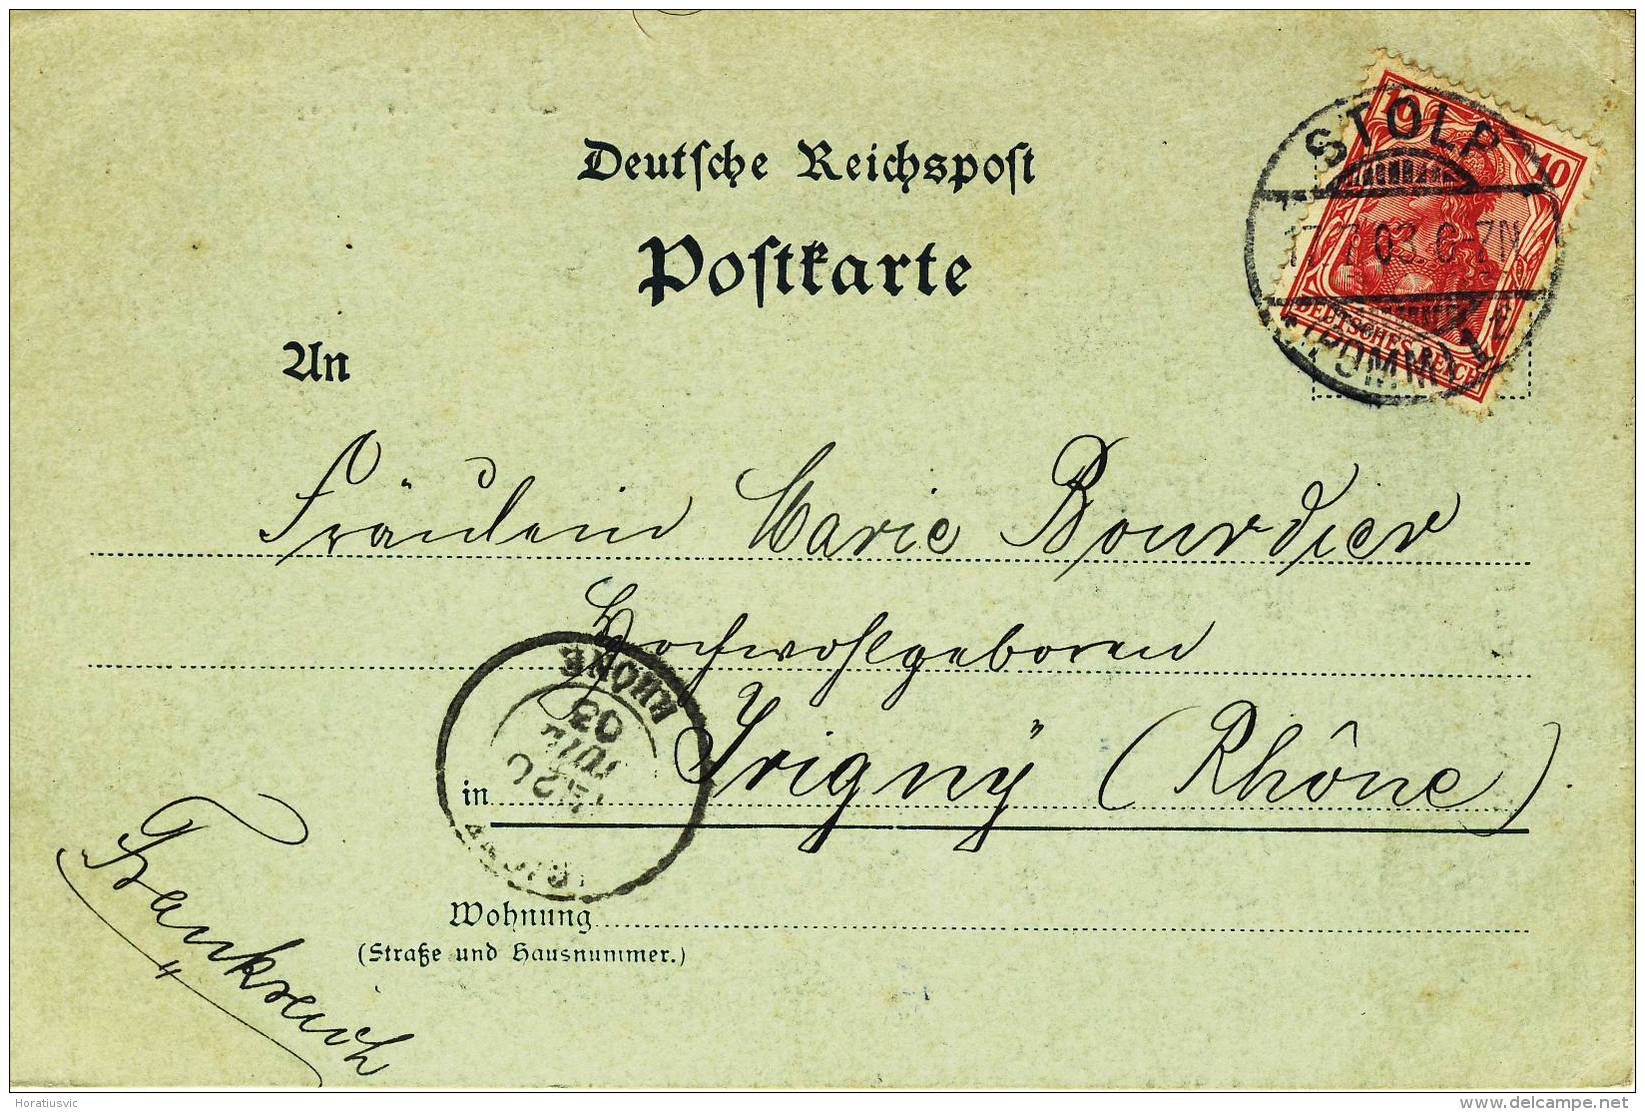 Deutsche Reichspost
Postkarte
STOLP
17.7.03. 6-7N
*(POMM) 1 e
10 10
DEUTSCHES REICH
An
Fräulein Marie Bourdier
Hochwohlgeboren
RHONE
03
in Irigny (Rhône)
Wohnung
(Straße und Hausnummer.)
Frankreich
Horatiusvic
delcampe.net